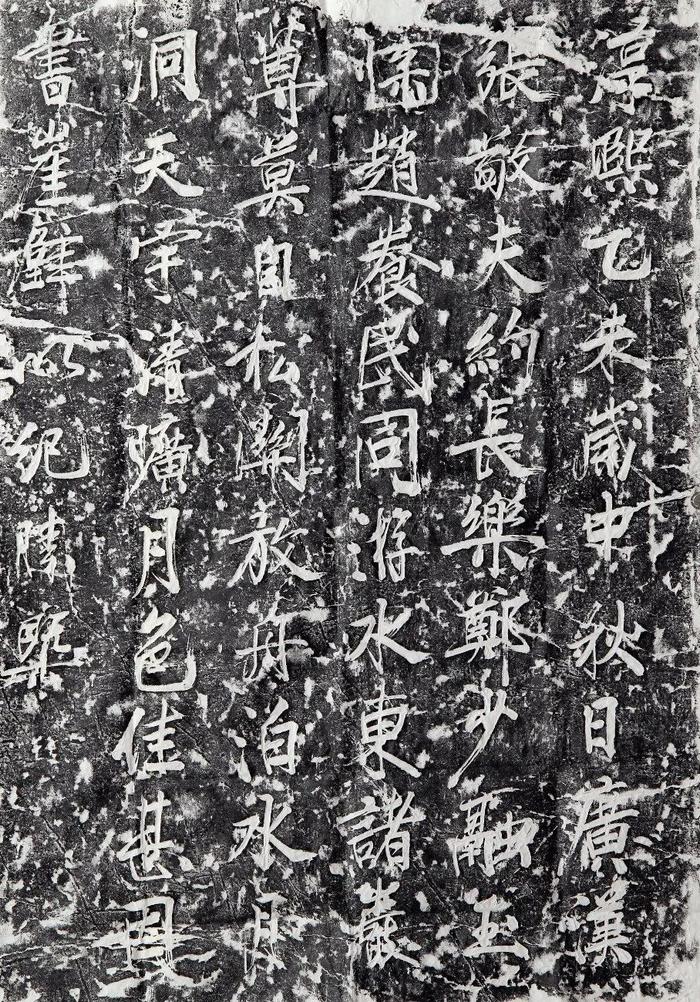 淳熙乙未歲中秋日廣漢
張敬夫約長樂鄭少融玉
山趙養民同游水東諸巖
薄莫自松關放舟泊水月
洞天宇清曠月色佳甚因
書崖壁以紀勝槩